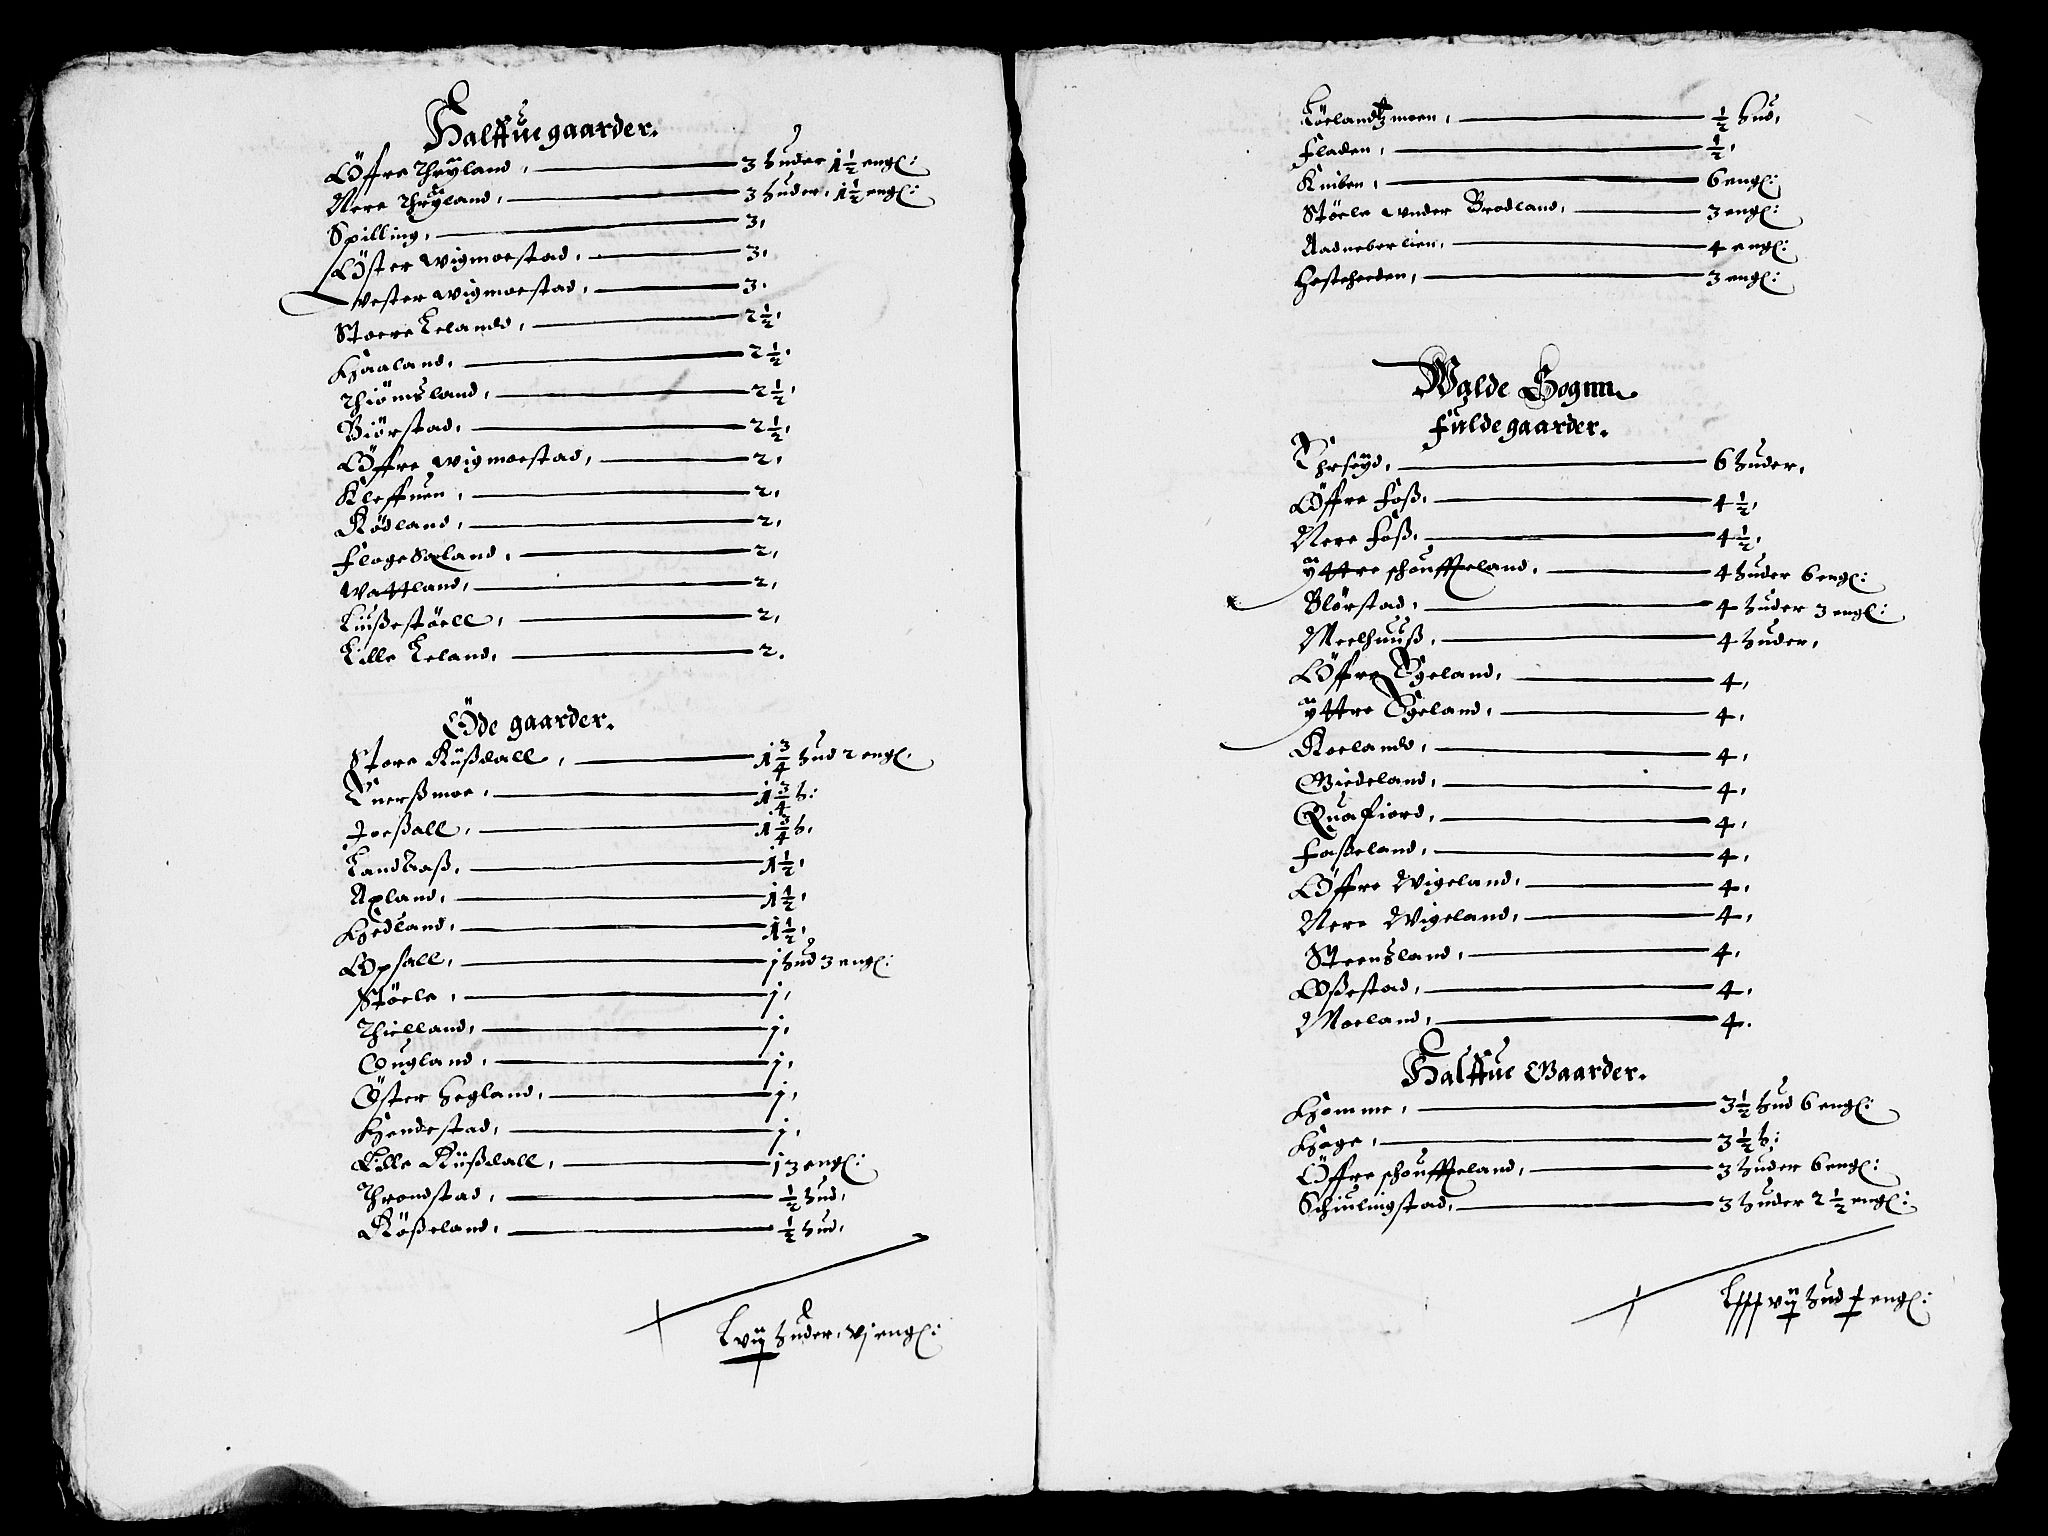 Halffue gaarder.
Öffre Thryland, 3 huder 1½ engl:
Nere Thryland, 3 huder, 1½ engl:
Spilling, 3,
Öster wigmoestad, 3,
vester wigmoestad, 3.
Stoere Leland, 2½,
Haaland, 2½,
Thiömsland, 2½,
Biörstad, 2½,
Öffre wigmoestad, 2,
Kleffuen, 2,
Rödland, 2,
Floge Sæland, 2,
Wattland, 2,
Liußestöell, 2,
Lille Leland, 2.
Öde gaarder.
Store Rüßdall, 1¾ hud 2 engl:
Enerßmoe, 1¾ h:
Joeßall, 1¾ h,
Landaaß, 1½,
Apland, 1½,
Hedland, 1½,
Opsall, 1 hud 3 engl:
Stöele, 1,
Thielland, 1,
Ougland, 1,
Öster Hegland, 1,
Hendestad, 1,
Lille Rüßdall, 1 3 engl:
Throndstad, ½ hud,
Rößeland, ½ hud,
Lvij huder, vj engl:
Töelandtzmoen, ½ hud,
Fladen, ½,
Kniben, 6 engl:
Stöele under Brodland, 3 engl:
Aadneberlien, 4 engl:
Hesteheeden, 3 engl:
Walde Sognn.
Fulde gaarder.
Ehrseyd, 6 huder,
Öffre Foß, 4½,
Nere Foß, 4½,
Ÿttre schouffueland, 4 huder 6 engl:
Blörstad, 4 huder 3 engl:
Meelhuuß, 4 huder,
Öffre Egeland, 4,
Ÿttre Egeland, 4,
Roeland, 4,
Giedeland, 4,
Quafiord, 4,
Faßeland, 4,
Öffre Wigeland, 4,
Nere Wigeland, 4,
Steensland, 4,
Oßestad, 4,
Moeland, 4.
Halffue Gaarder.
Homme, 3½ hud 6 engl:
Hage, 3½ h:
Öffre schouffueland, 3 huder 6 engl:
Schiulingstad, 3 huder 2½ engl:
Lxxxvij hud x engl: